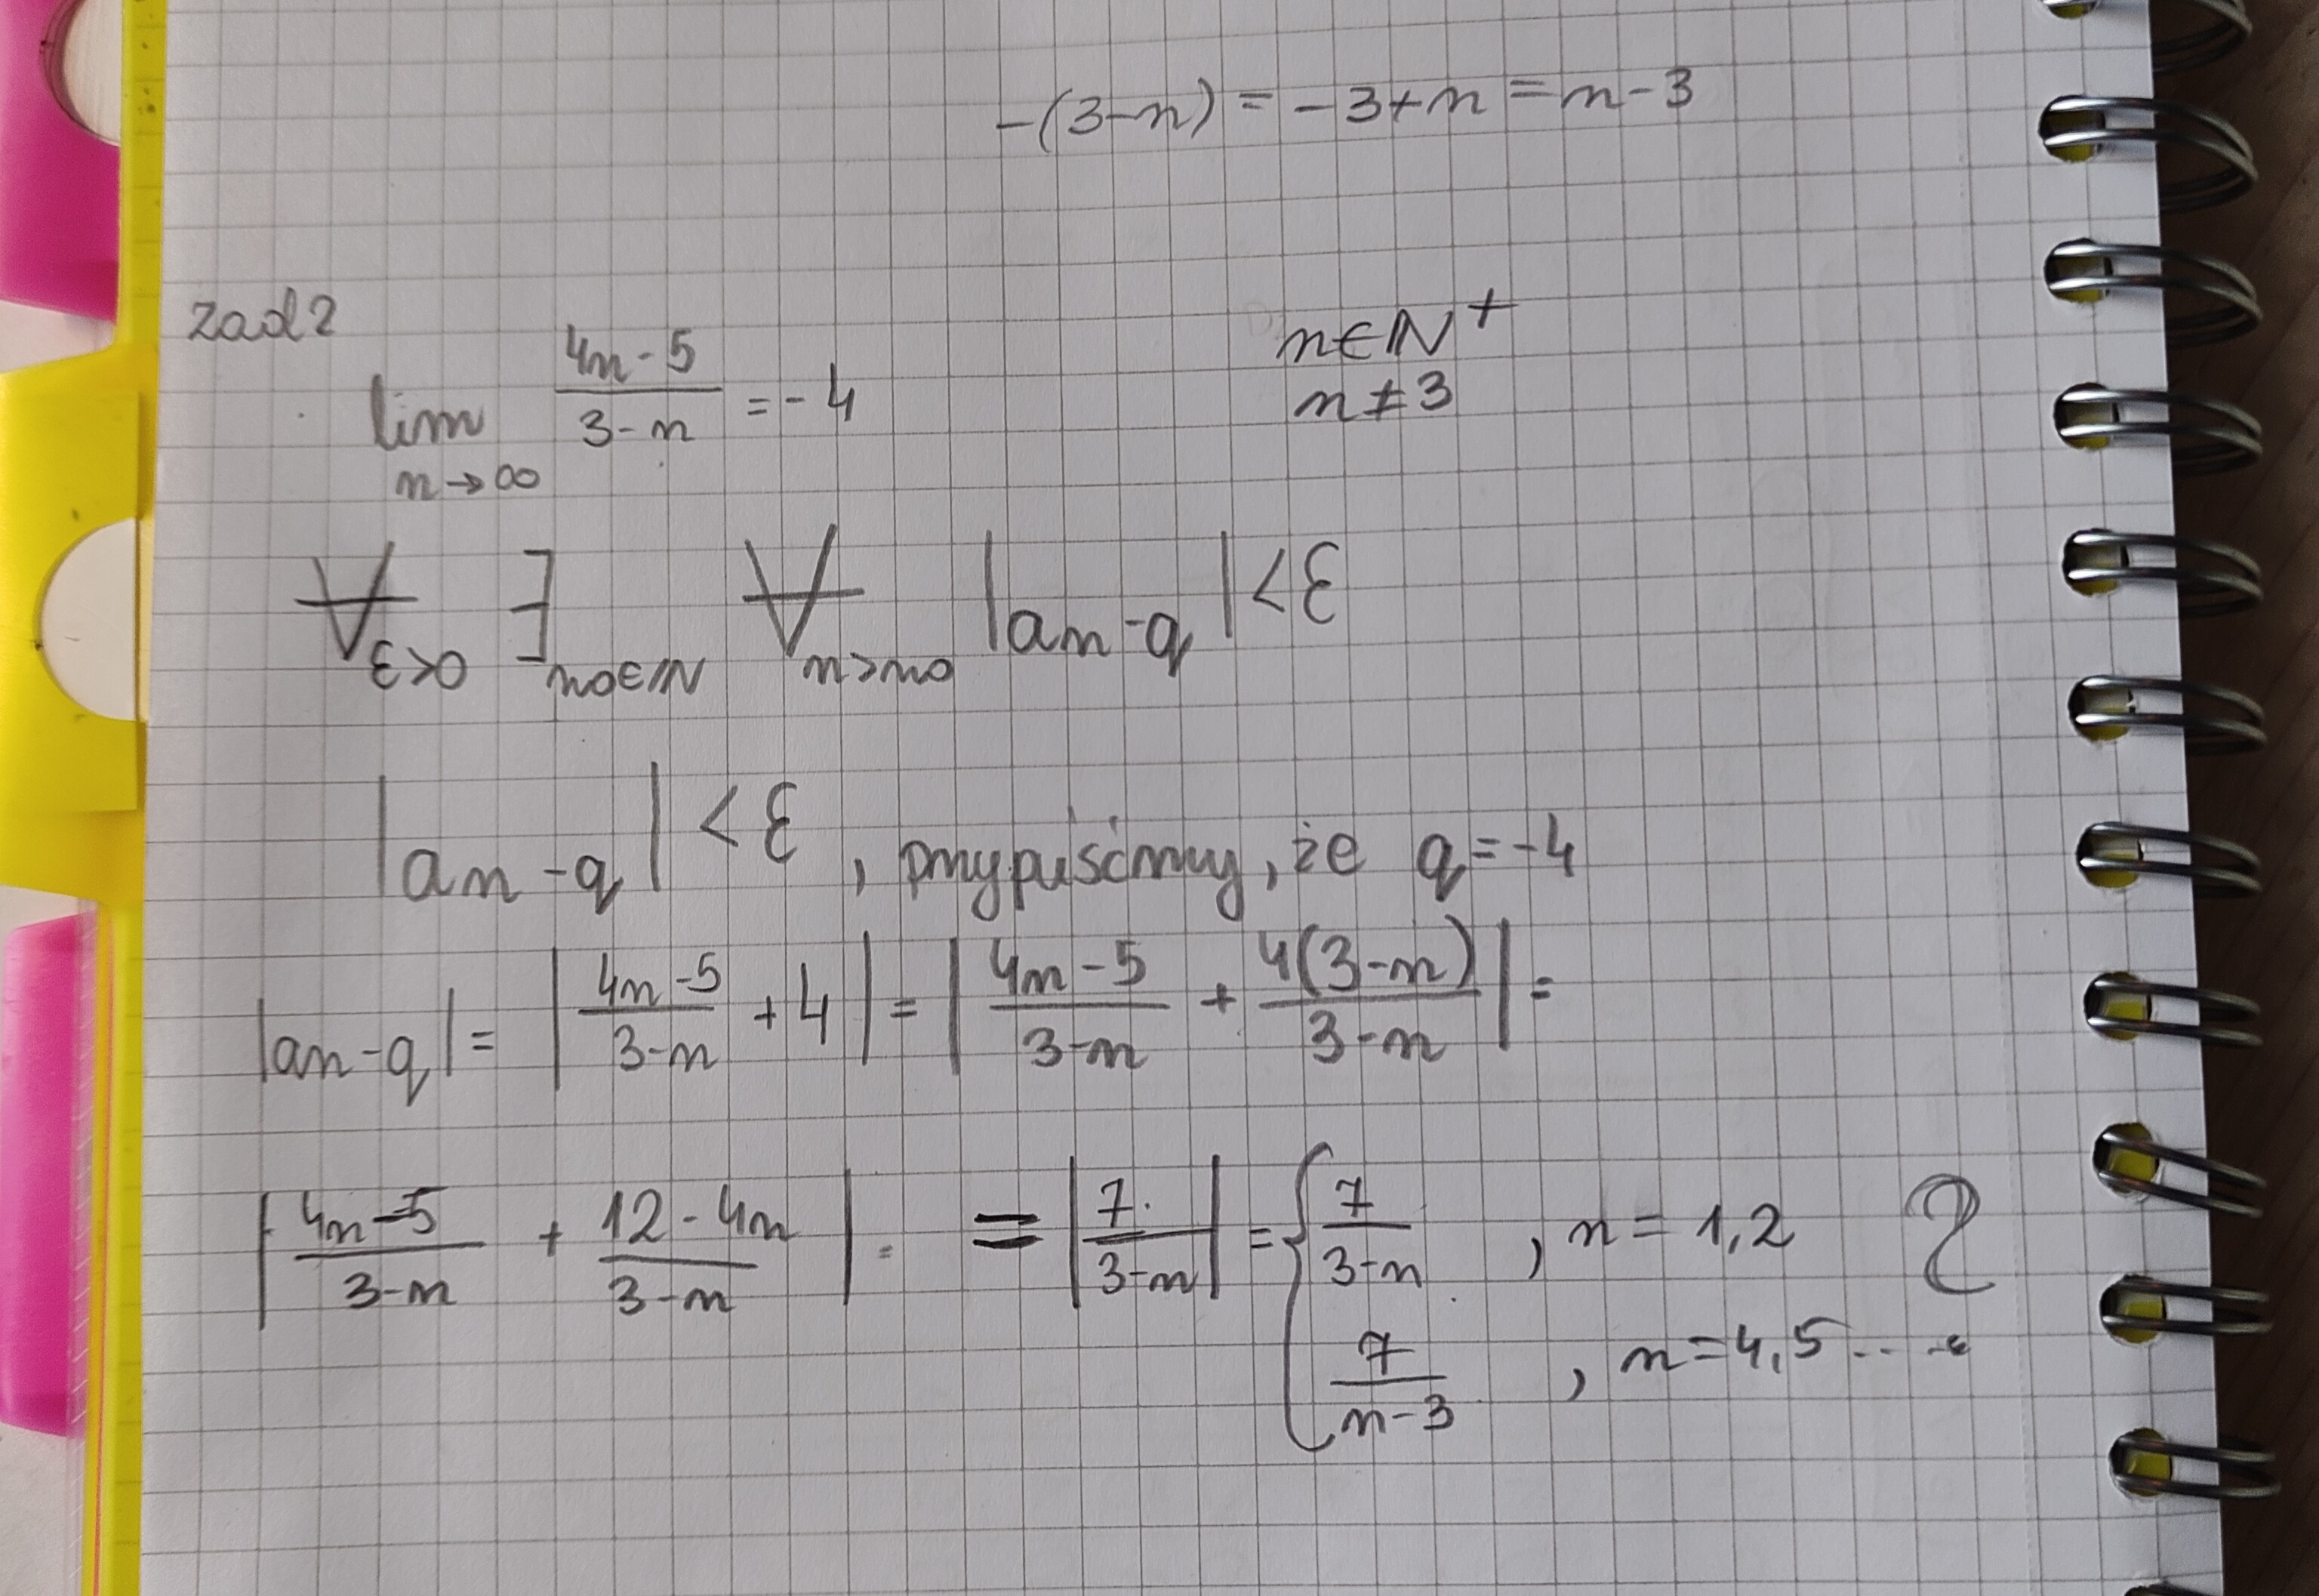 -(3-n) = -3+n = n-3
zad2
lim n→∞ (4n-5)/(3-n) = -4
n∈ℕ⁺
n≠3
∀ε>0 ∃n₀∈ℕ ∀n>n₀ |an-q|<ε
|an-q|<ε, przypuśćmy, że q=-4
|an-q| = |(4n-5)/(3-n) + 4| = |(4n-5)/(3-n) + 4(3-n)/(3-n)| =
|(4n-5)/(3-n) + (12-4n)/(3-n)| = = |7/(3-n)| = { 7/(3-n), n=1,2 ?
7/(n-3), n=4,5....